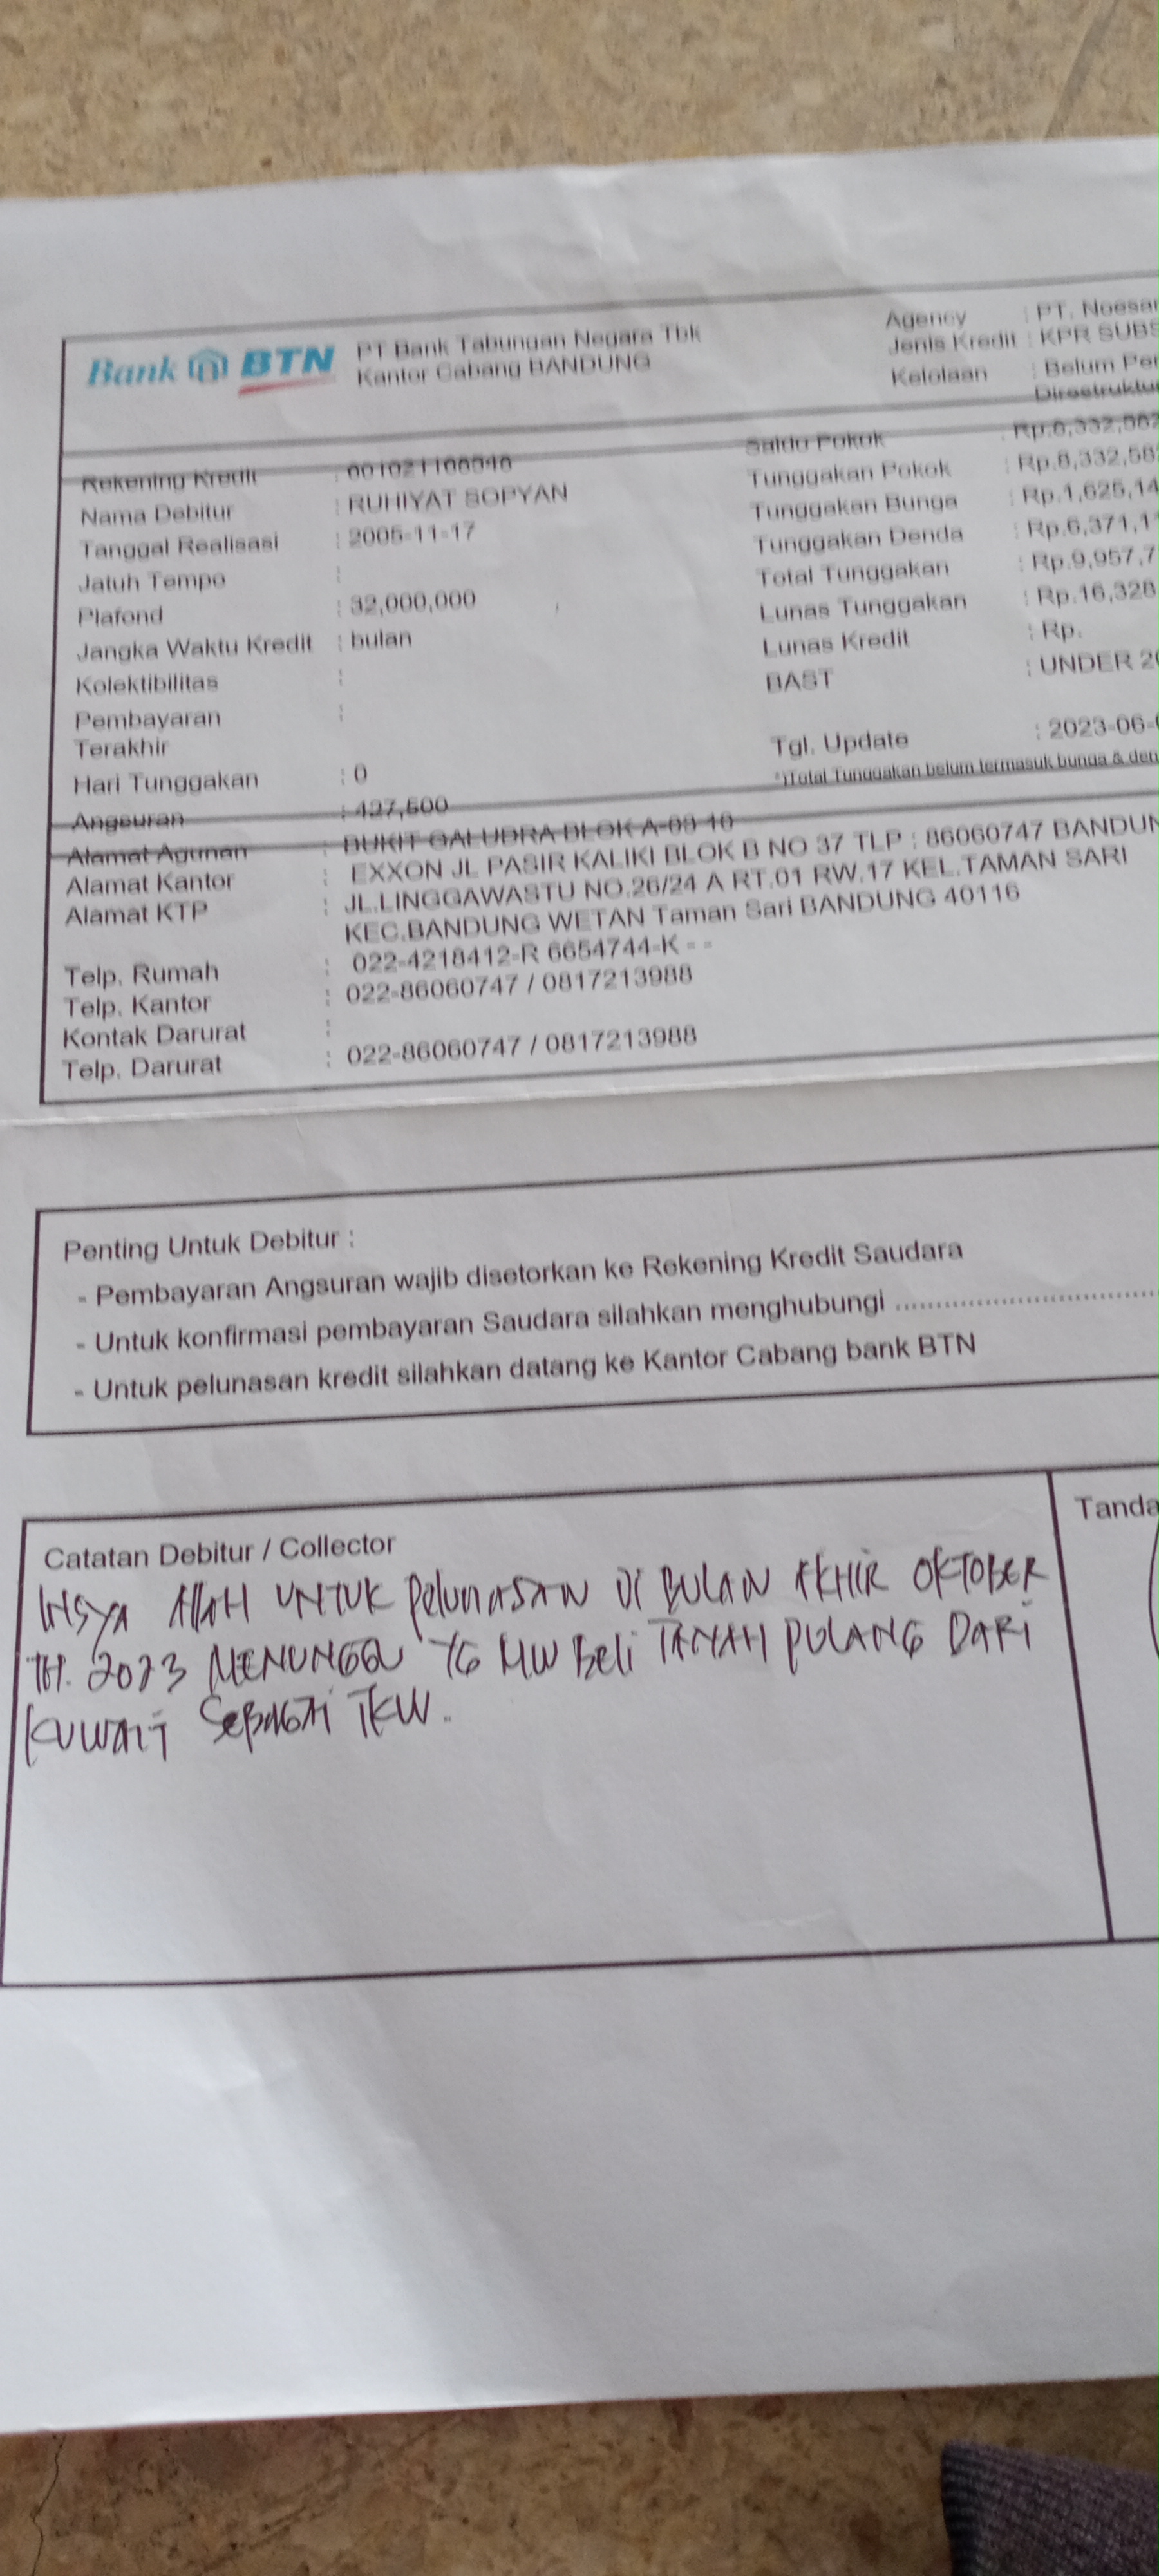 Bank BTN
PT Bank Tabungan Negara Tbk
Kantor Cabang BANDUNG
Agency : PT. Noesar
Jenis Kredit : KPR SUBS
Kelolaan : Belum Per
Direstruktu
Rekening Kredit :
Nama Debitur : RUHIYAT SOPYAN
Tanggal Realisasi : 2005-11-17
Jatuh Tempo :
Plafond : 32,000,000
Jangka Waktu Kredit : bulan
Kolektibilitas :
Pembayaran :
Terakhir
Hari Tunggakan : 0
Angsuran : 427,500
Saldo Pokok
Tunggakan Pokok : Rp.8,332,58
Tunggakan Bunga : Rp.1,625,14
Tunggakan Denda : Rp.6,371,1
Total Tunggakan : Rp.9,957,7
Lunas Tunggakan : Rp.16,328
Lunas Kredit : Rp.
BAST : UNDER 20
Tgl. Update : 2023-06-0
*)Total Tunggakan belum termasuk bunga & den
Alamat Agunan : BUKIT GALUDRA BLOK
Alamat Kantor : EXXON JL PASIR KALIKI BLOK B NO 37 TLP : 86060747 BANDUN
Alamat KTP : JL.LINGGAWASTU NO.26/24 A RT.01 RW.17 KEL.TAMAN SARI
KEC.BANDUNG WETAN Taman Sari BANDUNG 40116
Telp. Rumah : 022-4218412-R 6654744-K - -
Telp. Kantor : 022-86060747 / 0817213988
Kontak Darurat :
Telp. Darurat : 022-86060747 / 0817213988
Penting Untuk Debitur :
- Pembayaran Angsuran wajib disetorkan ke Rekening Kredit Saudara
- Untuk konfirmasi pembayaran Saudara silahkan menghubungi ................................
- Untuk pelunasan kredit silahkan datang ke Kantor Cabang bank BTN
Catatan Debitur / Collector
Tanda
INSYA ALLAH UNTUK pelunASAN DI BULAN AKHIR OKTOBER
TH. 2023 MENUNGGU YG MW Beli TANAH PULANG DARI
KUWAIT SEBAGAI TKW.